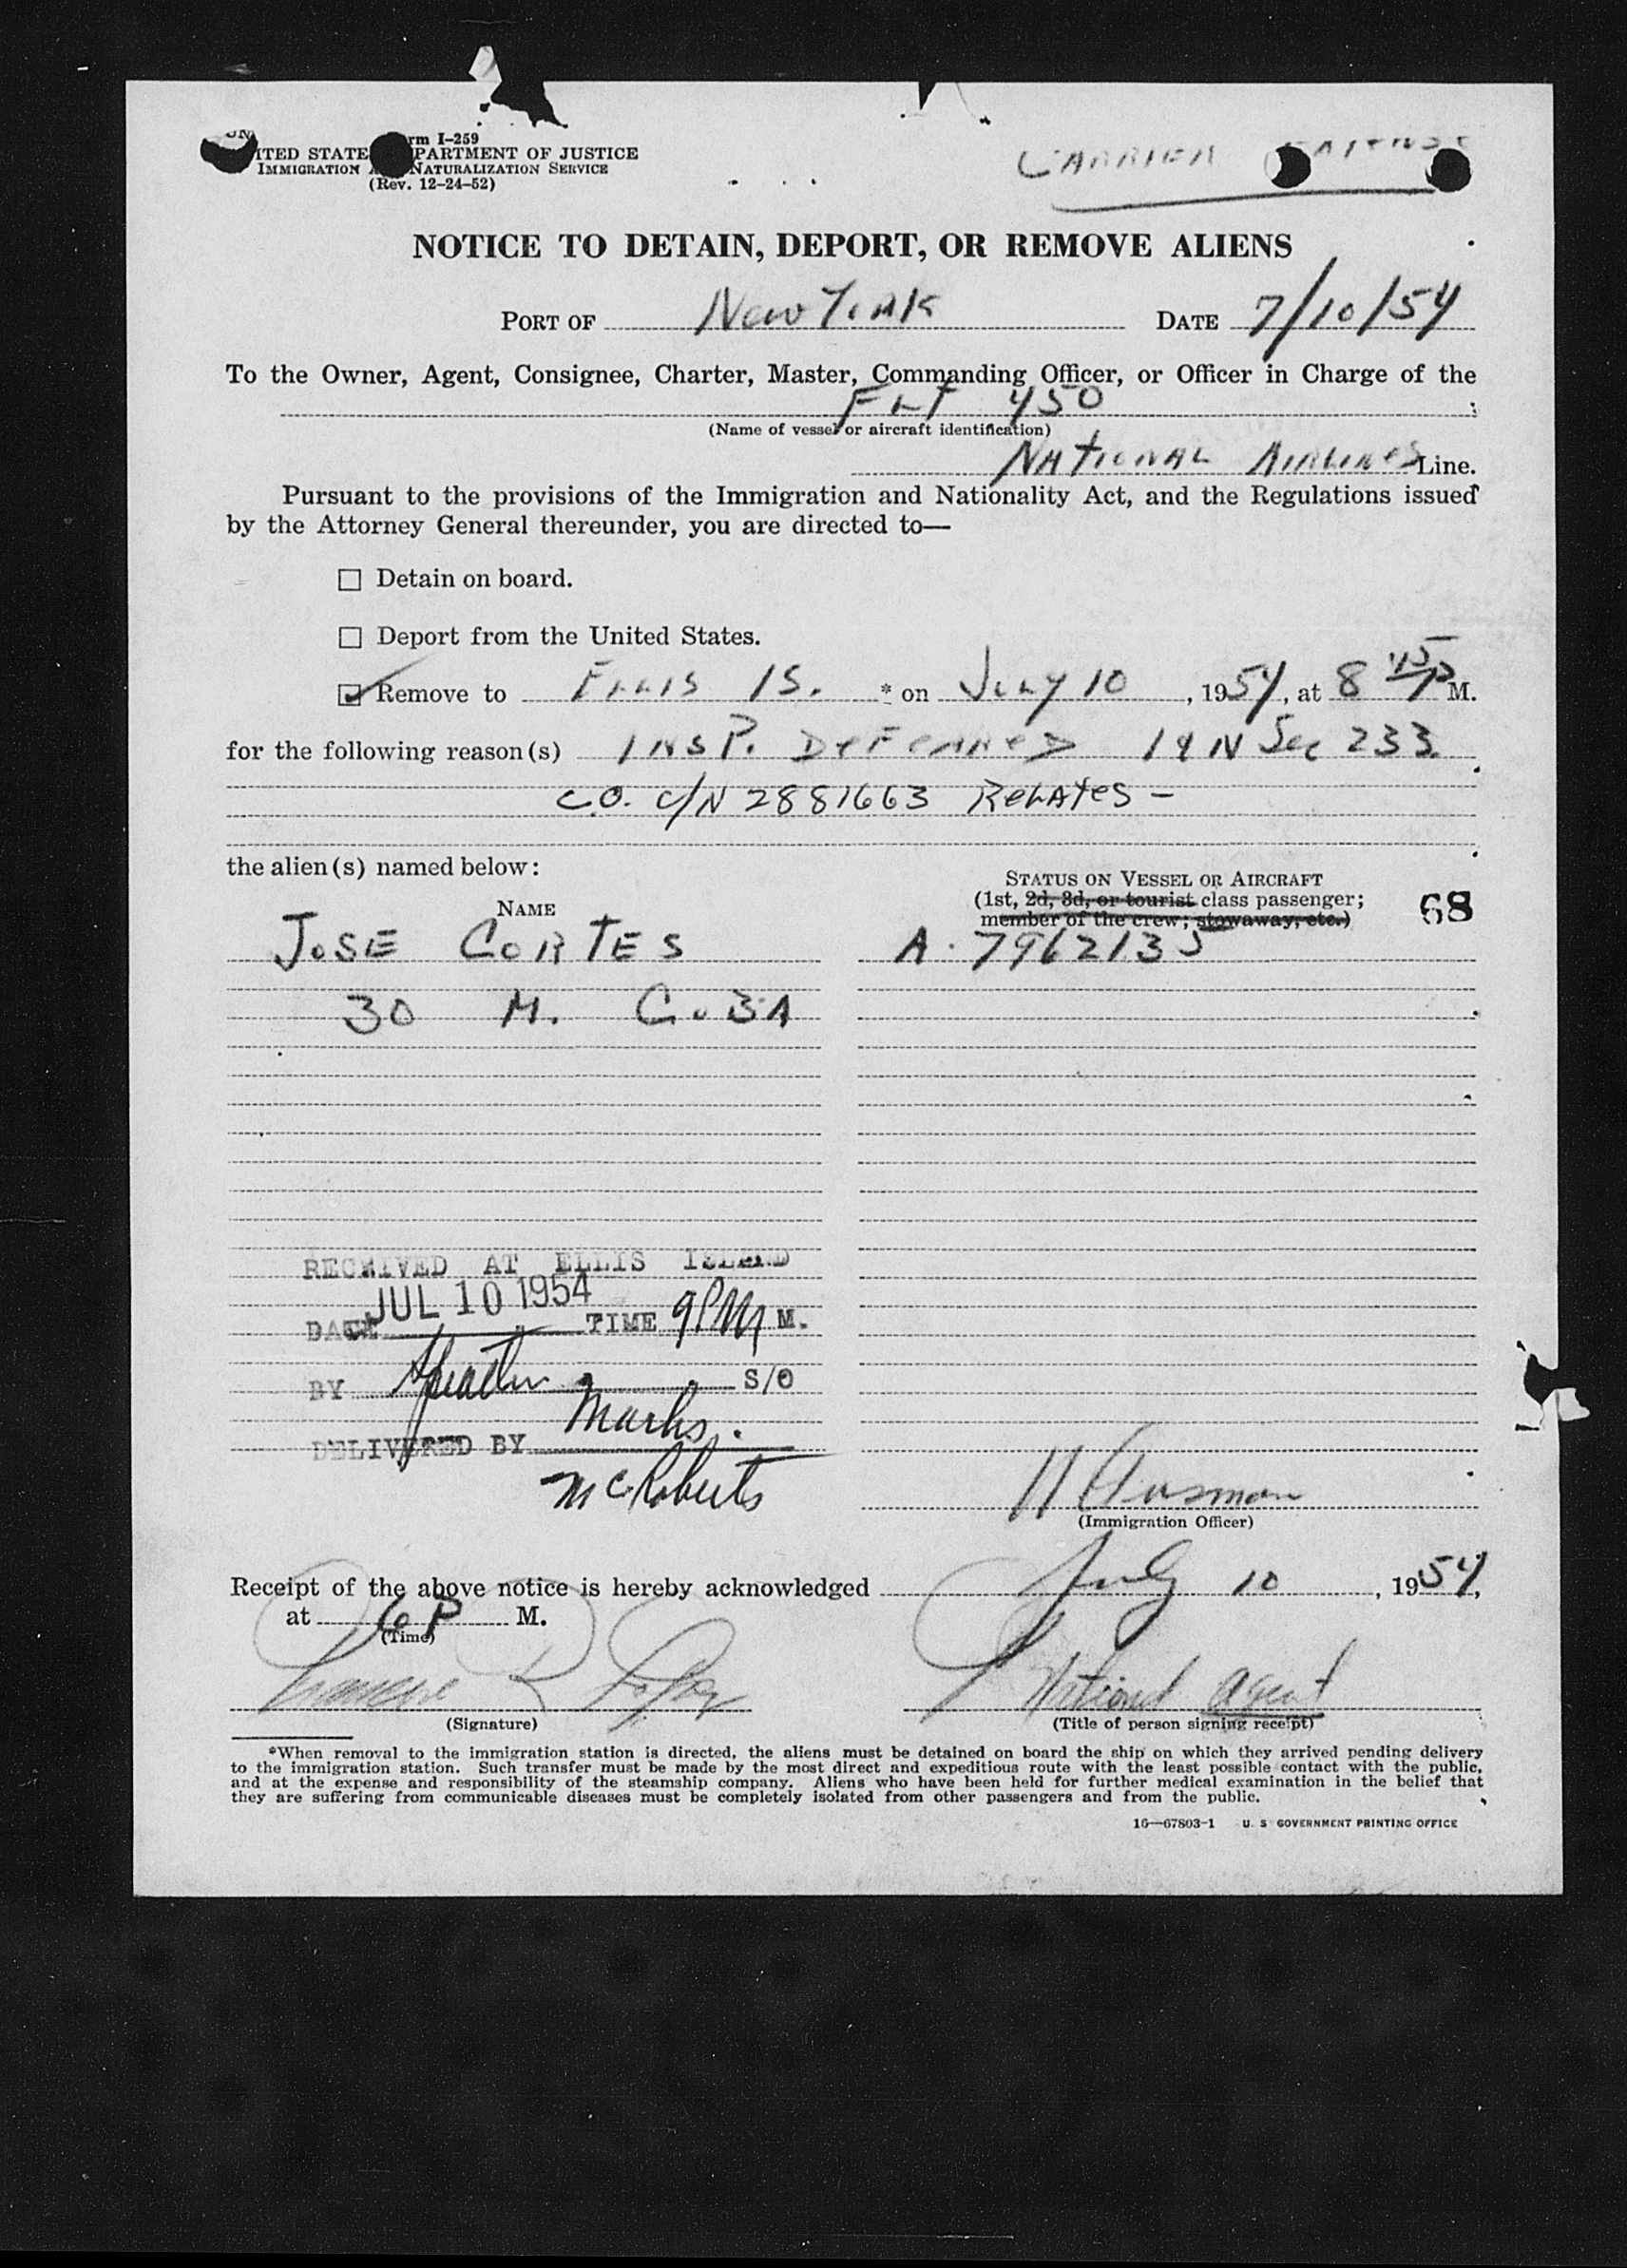 Form I-259
UNITED STATES DEPARTMENT OF JUSTICE
IMMIGRATION AND NATURALIZATION SERVICE
(Rev. 12-24-52)
CARRIER
NOTICE TO DETAIN, DEPORT, OR REMOVE ALIENS
PORT OF New York DATE 7/10/54
To the Owner, Agent, Consignee, Charter, Master, Commanding Officer, or Officer in Charge of the
FLT 450 ;
(Name of vessel or aircraft identification)
NATIONAL AIRLINES Line.
Pursuant to the provisions of the Immigration and Nationality Act, and the Regulations issued
by the Attorney General thereunder, you are directed to—
☐ Detain on board.
☐ Deport from the United States.
☑ Remove to ELLIS IS. * on JULY 10, 1954, at 8 45 P M.
for the following reason(s) INSP. DEFERRED I & N Sec 233.
C.O. C/N 2881663 RELATES -
the alien(s) named below:
STATUS ON VESSEL OR AIRCRAFT
(1st, 2d, 3d, or tourist class passenger;
member of the crew; stowaway, etc.)
68
NAME
JOSE CORTES A. 7962135
30 M. CUBA
RECEIVED AT ELLIS ISLAND
DATE JUL 10 1954 TIME 9 PM M.
BY S/O
Marks.
DELIVERED BY
McRoberts
(Immigration Officer)
Receipt of the above notice is hereby acknowledged July 10, 1954,
at 6 P M.
(Time)
National Agent
(Signature) (Title of person signing receipt)
*When removal to the immigration station is directed, the aliens must be detained on board the ship on which they arrived pending delivery
to the immigration station. Such transfer must be made by the most direct and expeditious route with the least possible contact with the public,
and at the expense and responsibility of the steamship company. Aliens who have been held for further medical examination in the belief that
they are suffering from communicable diseases must be completely isolated from other passengers and from the public.
16—67803-1 U. S. GOVERNMENT PRINTING OFFICE